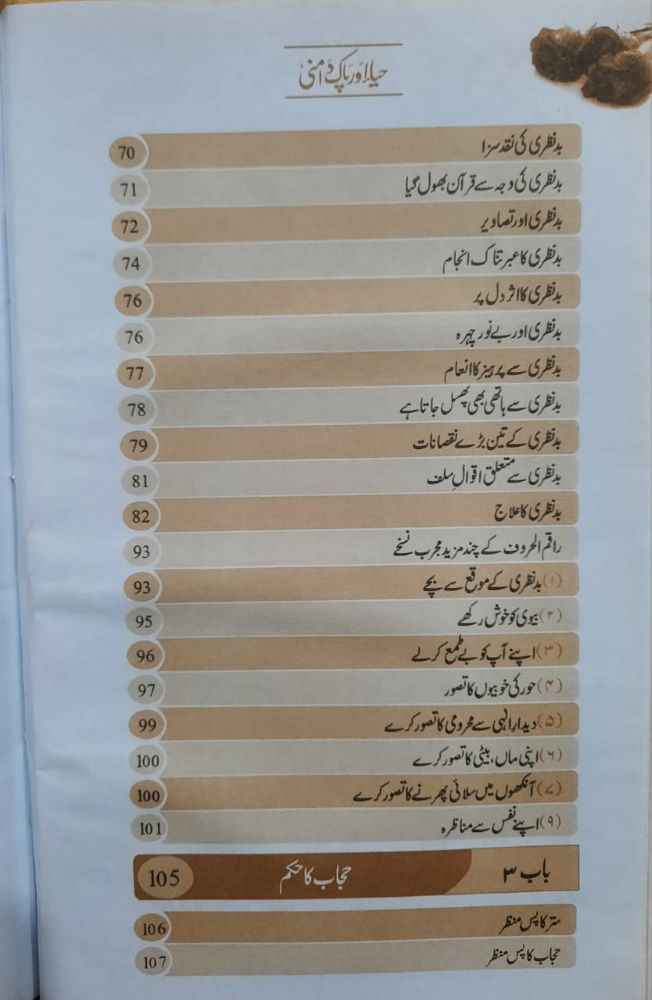 حیاء اور پاک دامنی
بدنظری کی نقد سزا 70
بدنظری کی وجہ سے قرآن بھول گیا 71
بدنظری اور تصاویر 72
بدنظری کا عبرتناک انجام 74
بدنظری کا اثر دل پر 76
بدنظری اور بے نور چہرہ 76
بدنظری سے پرہیز کا انعام 77
بدنظری سے ہاتھی بھی پھسل جاتا ہے 78
بدنظری کے تین بڑے نقصانات 79
بدنظری سے متعلق اقوالِ سلف 81
بدنظری کا علاج 82
راقم الحروف کے چند مزید مجرب نسخے 93
(۱) بدنظری کے موقع سے بچے 93
(۲) بیوی کو خوش رکھے 95
(۳) اپنے آپ کو بے طمع کرلے 96
(۴) حور کی خوبیوں کا تصور 97
(۵) دیدار الٰہی سے محرومی کا تصور کرے 99
(۶) اپنی ماں، بیٹی کا تصور کرے 100
(۷) آنکھوں میں سلائی پھرنے کا تصور کرے 100
(۹) اپنے نفس سے مناظرہ 101
باب ۳ حجاب کا حکم 105
ستر کا پس منظر 106
حجاب کا پس منظر 107